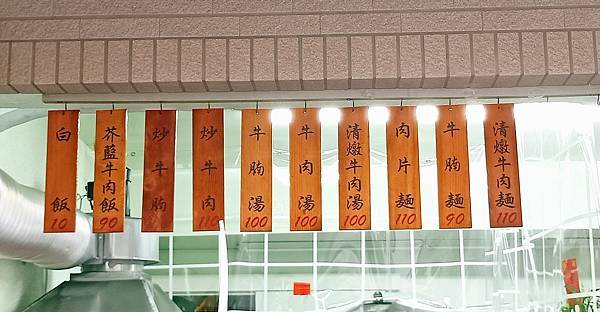 清燉牛肉麵 110
牛腩麵 90
肉片麵 110
清燉牛肉湯 100
牛肉湯 100
牛腩湯 100
炒牛肉 110
炒牛腩
芥藍牛肉飯 90
白飯 10